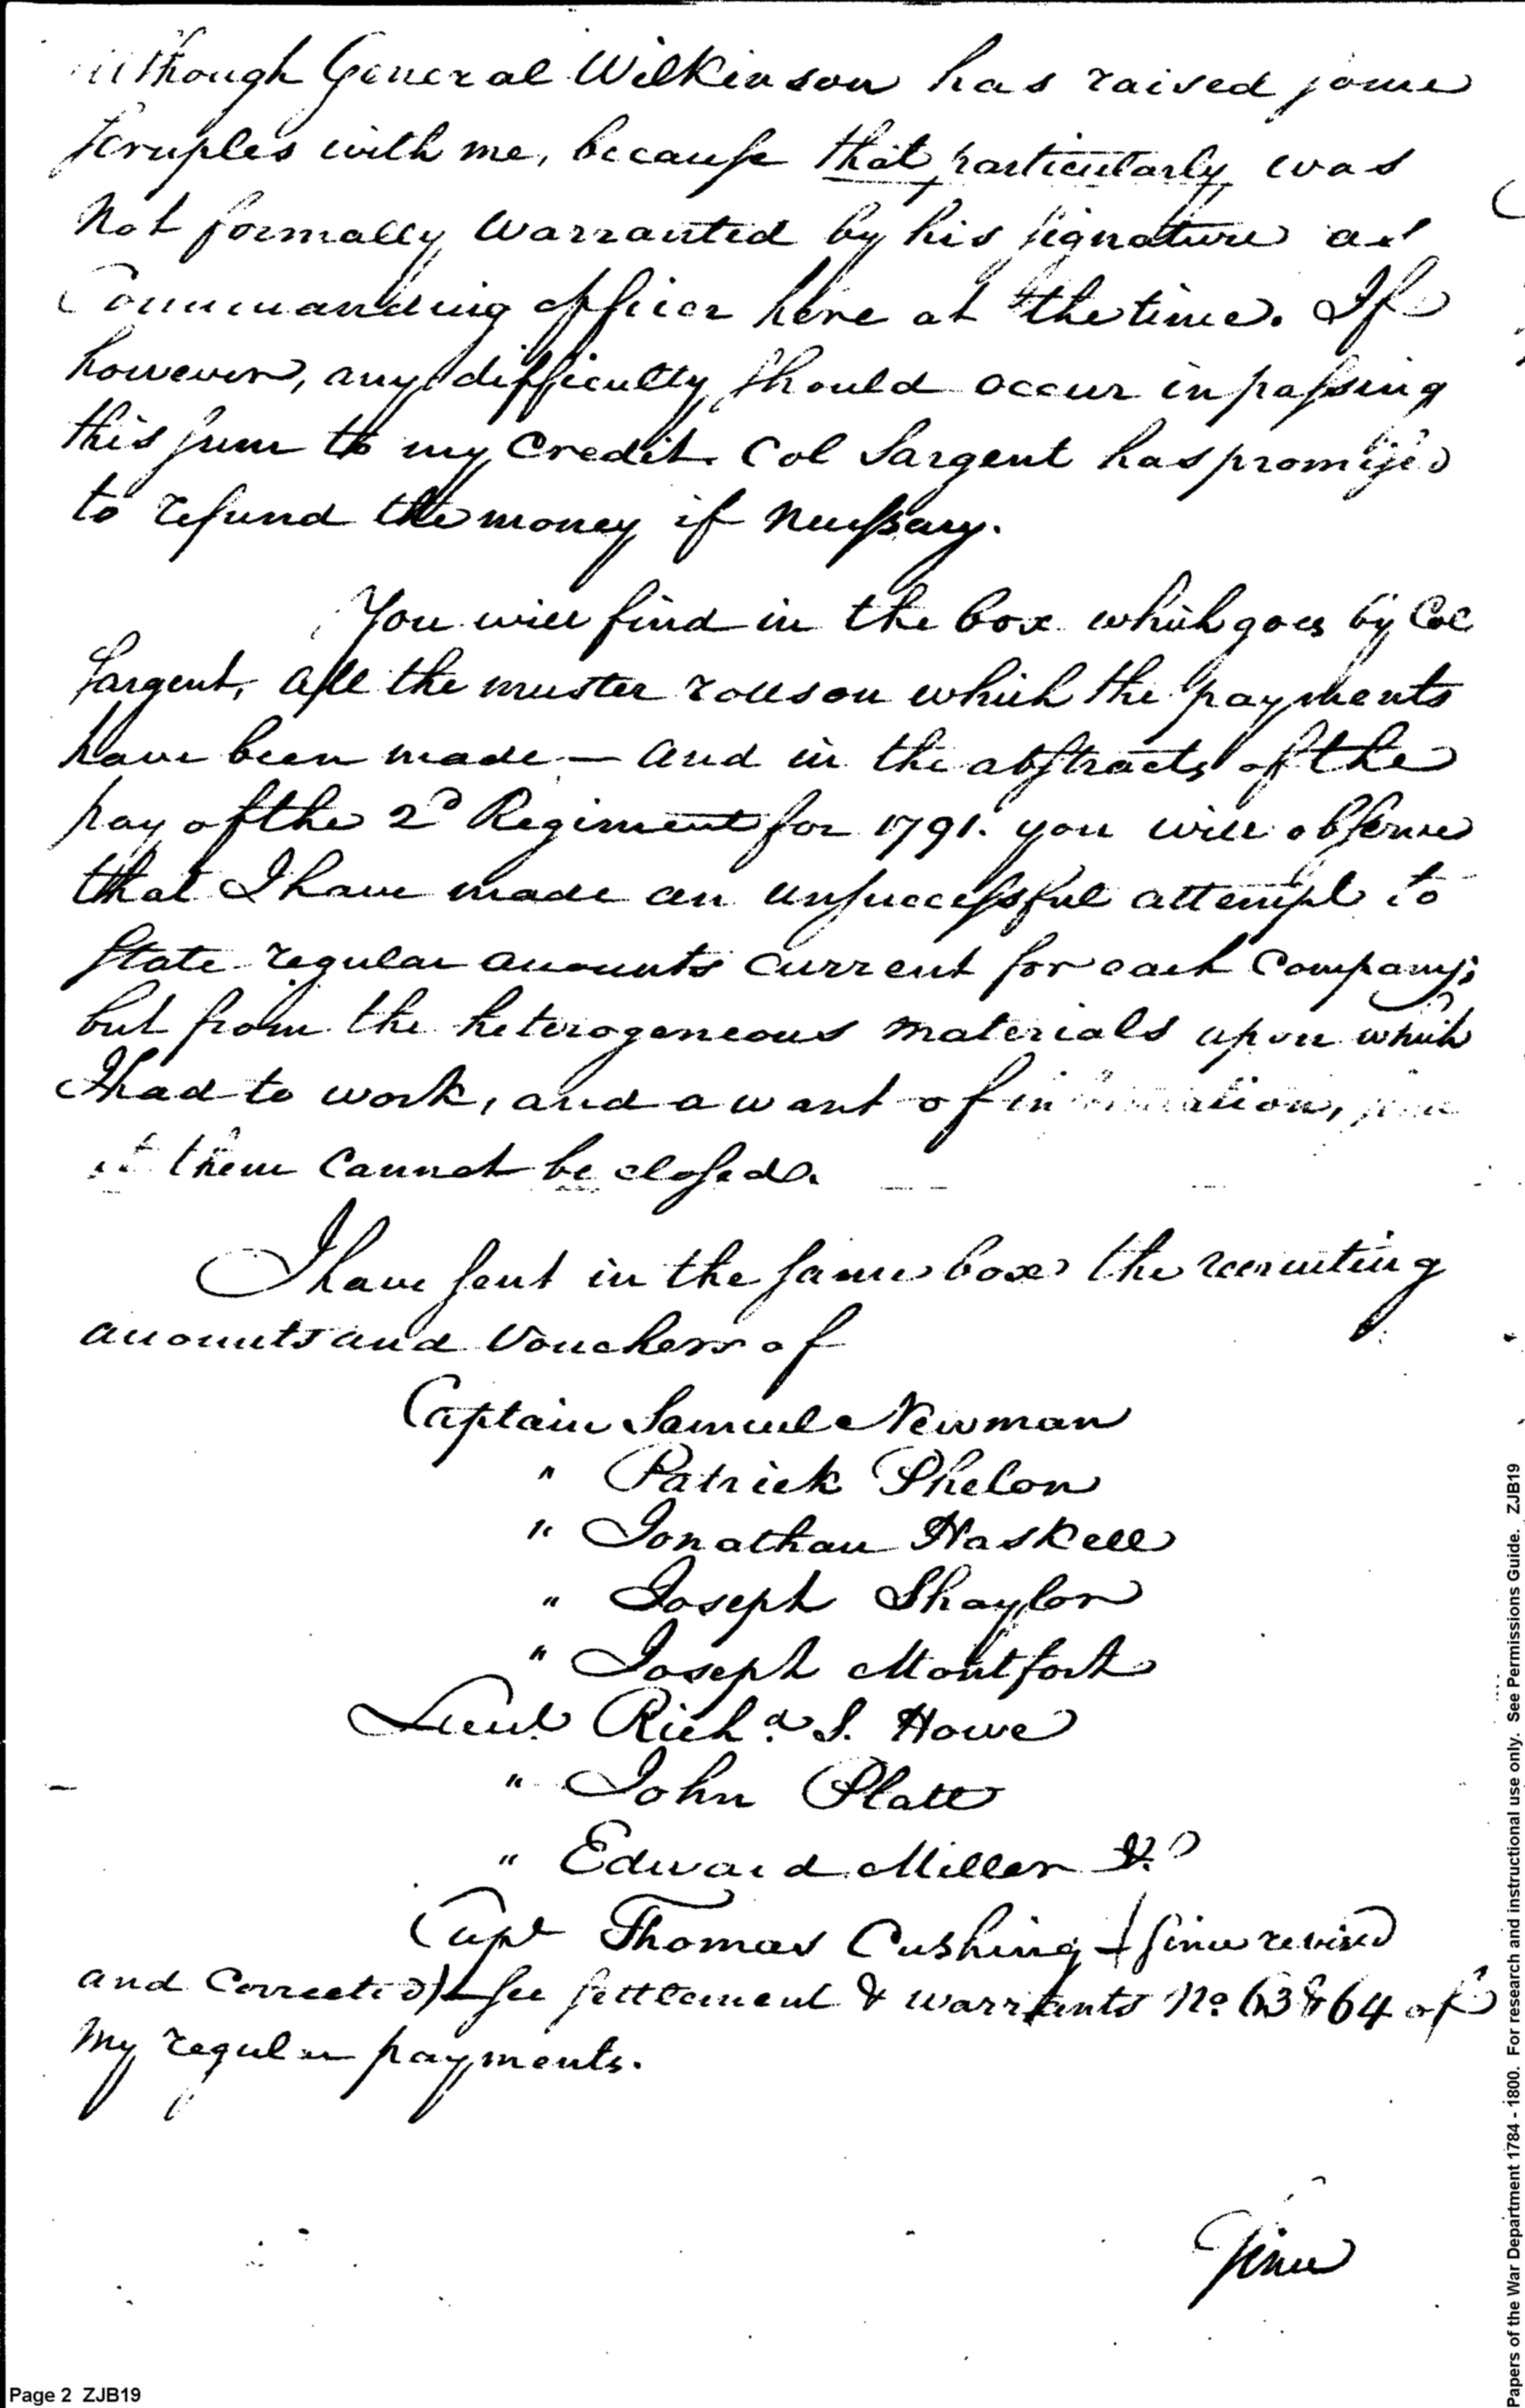 although General Wilkinson has raised some
scruples with me, because that particularly was
not formally warranted by his signature as
Commanding officer here at the time. If
however, any difficulty should occur in passing
this sum to my Credit. Col Sargent has promised
to refund the money if necessary.
You will find in the box which goes by Col
Sargent, all the muster rolls on which the payments
have been made — and in the abstracts of the
pay of the 2d Regiment for 1791. you will observe
that I have made an unsuccessful attempt to
State regular accounts current for each Company;
but from the heterogeneous materials upon which
I had to work, and a want of information,
of them cannot be closed.
I have sent in the same box the recruiting
accounts and Vouchers of
Captain Samuel Newman
" Patrick Phelon
" Jonathan Haskell
" Joseph Shaylor
" Joseph Montfort
Lieut. Richd. S. Howe
" John Platt
" Edward Miller &
Capt Thomas Cushing + (since revised
and Corrected) See settlement & warrants No. 63 & 64 of
my regular payments.
Since
Page 2 ZJB19
Papers of the War Department 1784 - 1800. For research and instructional use only. See Permissions Guide. ZJB19